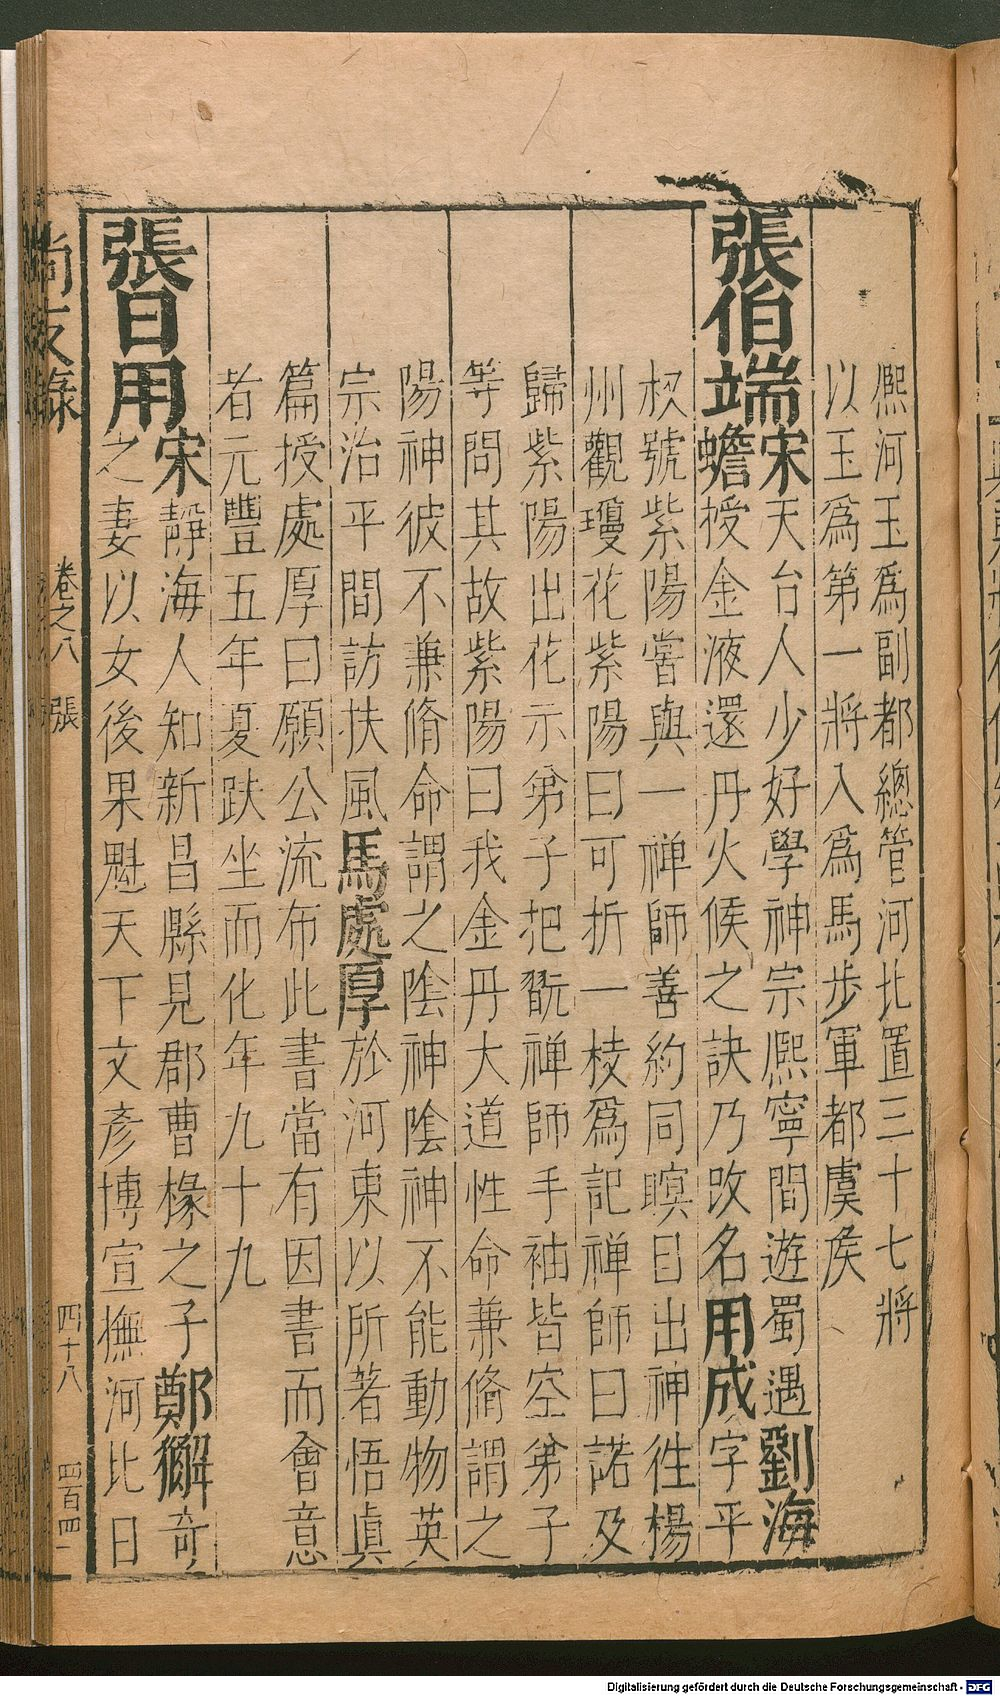 熈河玉爲副都總管河北置三十七將
以玉爲第一將入爲馬步軍都虞矦
張伯端宋天台人少好學神宗熈寧間遊蜀遇劉海
蟾授金液還丹火候之訣乃改名用成字平
杈號紫陽嘗與一禅師善約同瞑目出神徃楊
州觀瓊花紫陽曰可折一枝爲記禅師曰諾及
歸紫陽出花示弟子把翫禅師手袖皆空弟子
等問其故紫陽曰我金丹大道性命兼脩謂之
陽神彼不兼脩命謂之陰神陰神不能動物英
宗治平間訪扶風馬處厚於河東以所著悟眞
篇授處厚曰願公流布此書當有因書而會意
者元豐五年夏趺坐而化年九十九
張日用宋靜海人知新昌縣見郡曹椽之子鄭獬奇
之妻以女後果魁天下文彥博宣撫河北日
尚友錄 卷之八 張 四十八 四百四一
Digitalisierung gefördert durch die Deutsche Forschungsgemeinschaft - DFG